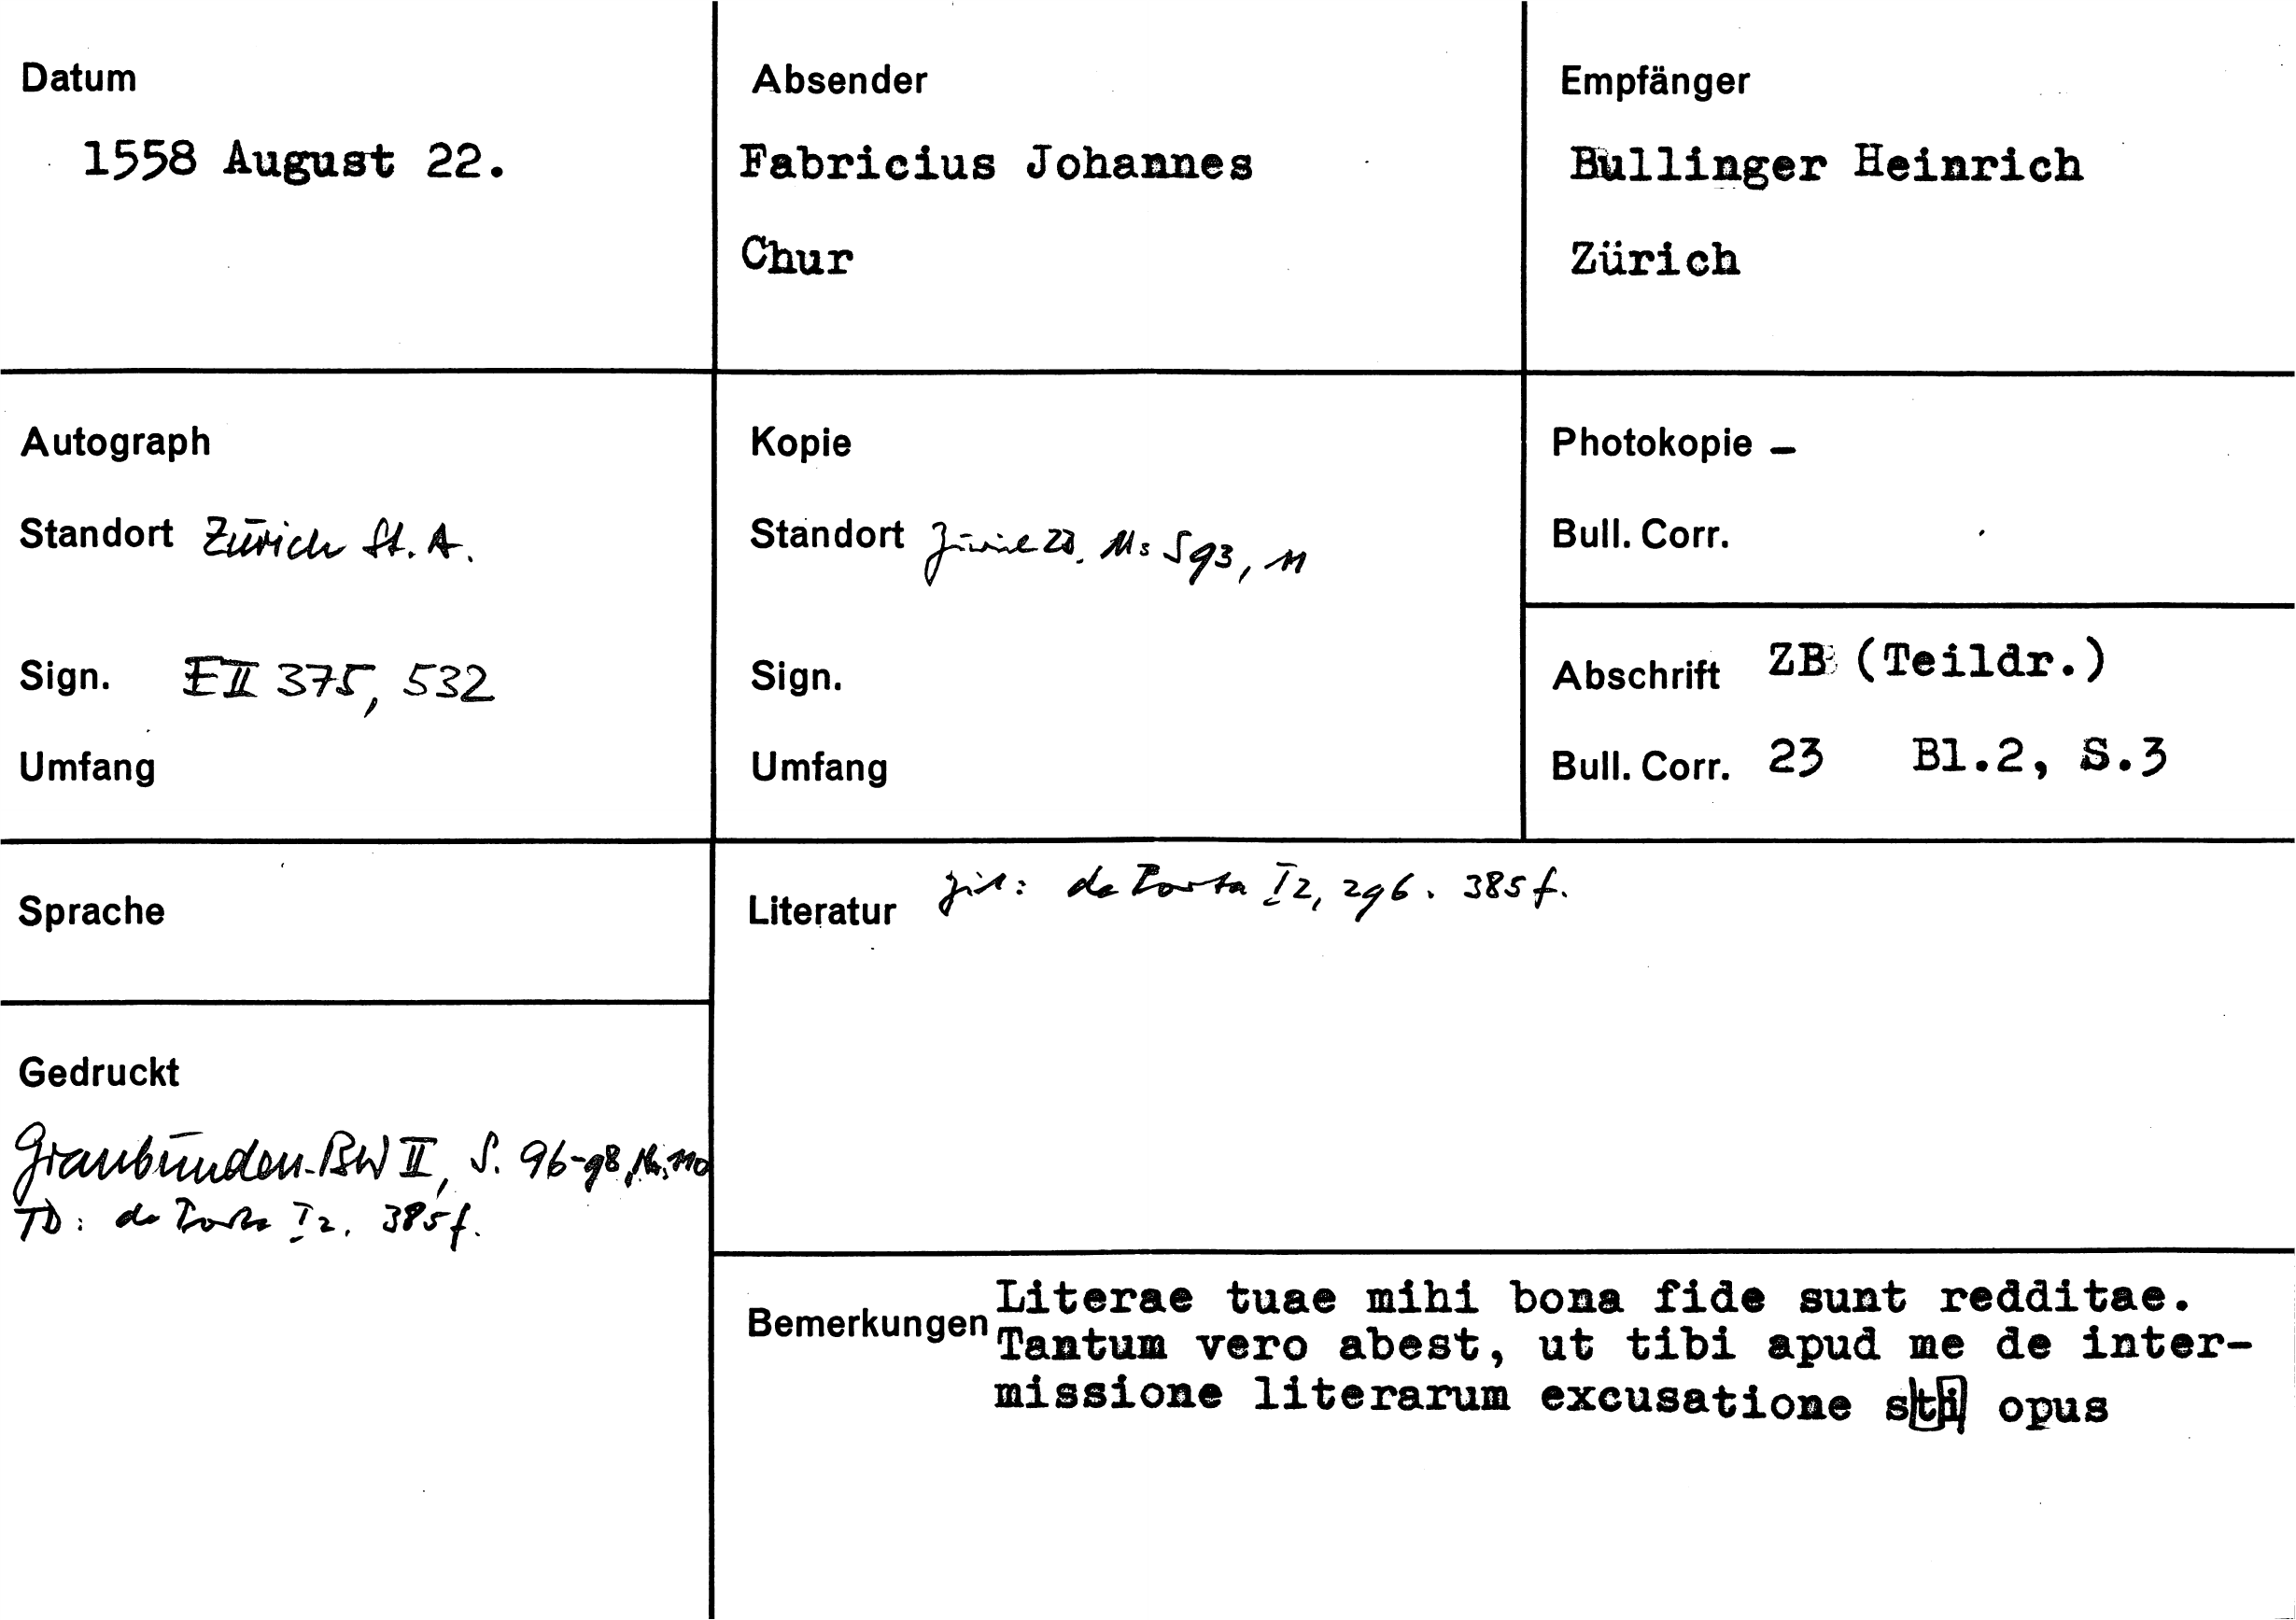 Datum
1558 August 22.
Absender
Fabricius Johannes
Chur
Empfänger
Bullinger Heinrich
Zürich
Autograph
Standort Zürich St. A.
Sign. E II 375, 532
Umfang
Kopie
Standort Zürich ZB. Ms S 93, 11
Sign.
Umfang
Photokopie –
Bull. Corr.
Abschrift ZB (Teildr.)
Bull. Corr. 23 Bl.2, S.3
Sprache
Literatur zit: de Porta I 2, 296. 385f.
Gedruckt
Graubünden-BW II, S. 96-98, Nr. 110
TD: de Porta I 2, 385f.
Bemerkungen Literae tuae mihi bona fide sunt redditae.
Tantum vero abest, ut tibi apud me de inter-
missione literarum excusatione sti opus